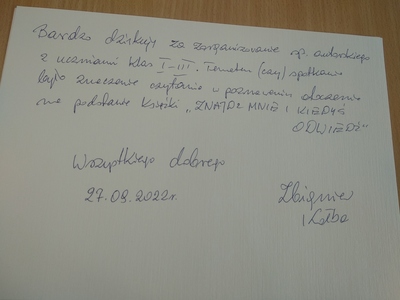 Bardzo dziękuję za zorganizowanie sp. autorskiego
z uczniami klas I-III. Tematem (czy) spotkania
było znaczenie czytania w poznawaniu otoczenia
na podstawie książki „ZNAJDŹ MNIE I KIEDYŚ
ODWIEDŹ"
Wszystkiego dobrego
27.09.2022r.
Zbigniew
Kołba